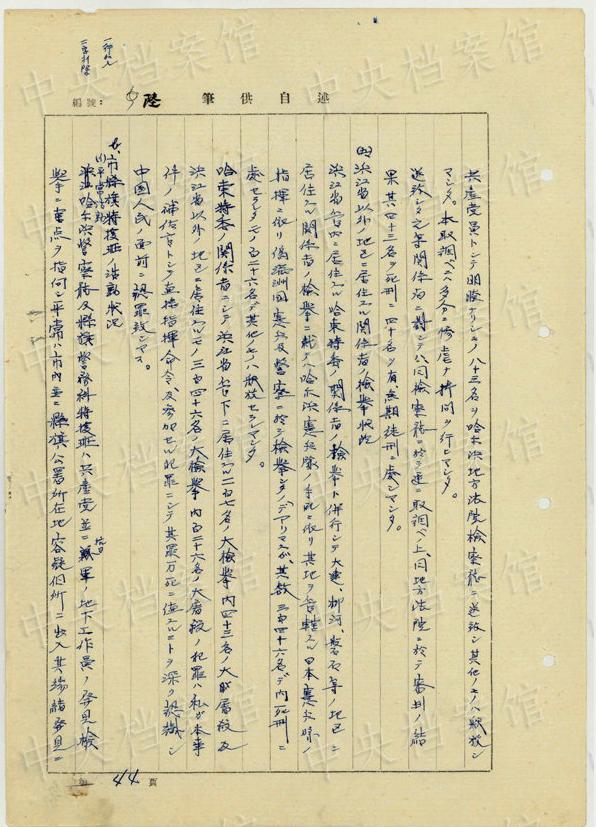 編號: 陸 筆供自述
共産党員トシテ明瞭ナリシモノ八十三名ヲ哈尓浜地方法院検察庁ニ送致シ其他ノモノハ釈放シ
マシタ。本取調ベニハ多分ニ惨虐ナ拷問ヲ行ヒマシタ。
送致シタ之等関係者ニ対シテハ同検察庁ニ於テ更ニ取調ベノ上、同地方法院ニ於テ審判ノ結
果其四十三名ヲ死刑ニ四十名ヲ有、無期徒刑ニ処シマシタ。
浜江省以外ノ地区ニ居住スル関係者ノ検挙状況
浜江省管内ニ居住スル哈東特委ノ関係者ノ検挙ト併行シテ大連、柳河、磐石等ノ地区ニ
居住スル関係者ノ検挙ニ就テハ哈尓浜憲兵隊ノ手配ニ依リ其地ヲ管轄スル日本憲兵隊ノ
指揮ニ依リ偽満洲国憲兵及警察ニ於テ検挙シタノデアリマスガ、其数三百四十六名デ内死刑ニ
処セラレタモノ百二十六名デ其他ノモノハ釈放セラレマシタ。
哈東特委ノ関係者ニシテ浜江省管下ニ居住スル二百七名ノ大検挙内四十三名ノ大虐殺及
浜江省以外ノ地区ニ居住スルモノ三百四十六名ノ大検挙内百二十六名ノ大虐殺ノ犯罪ハ私ガ本事
件ノ補佐官トシテ直接指揮命令、及参加セル犯罪ニシテ其罪万死ニ値スルコトヲ深ク認識シ
中国人民ノ面前ニ認罪致シマス。
市県旗特捜班ノ活動状況
哈尓浜警察庁及県旗警務科特捜班ハ共産党並ニ抗日軍ノ地下工作員ノ発見検
挙ニ重点ヲ指向シ平常ハ市内並ニ県旗公署所在地容疑個所ニ出入其端緒発見ニ
44 頁
中央档案馆